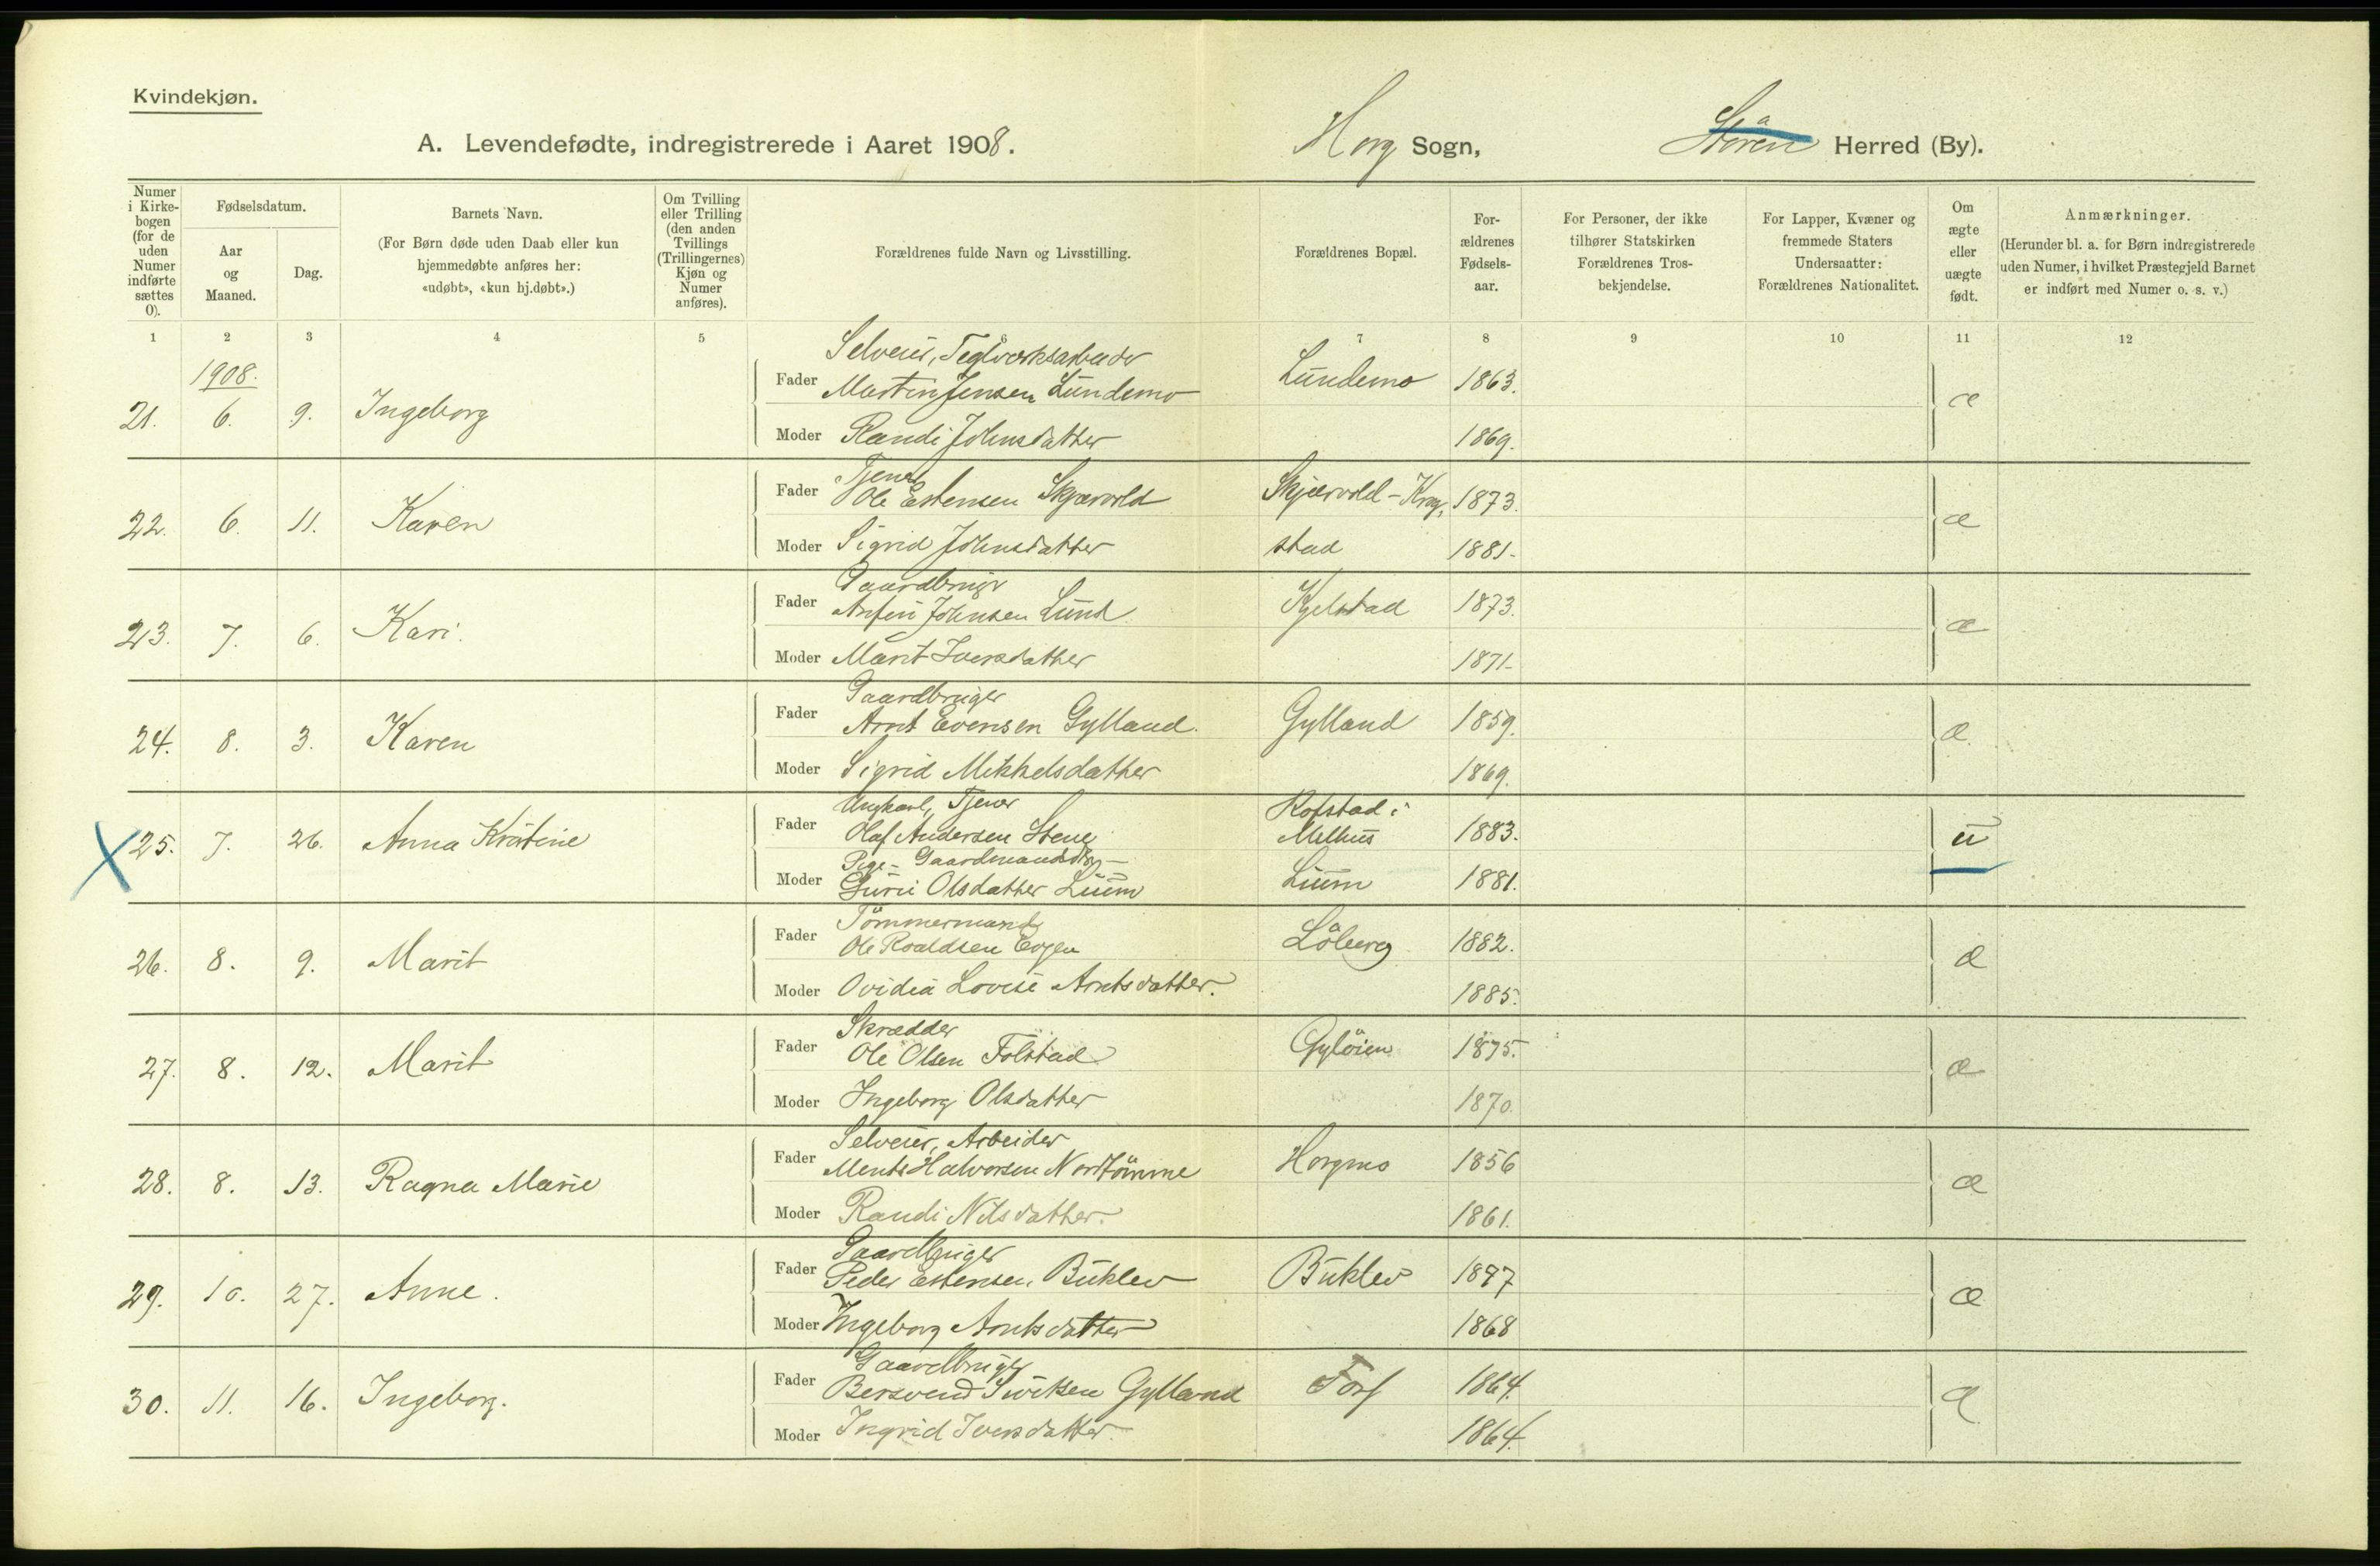 Kvindekjøn.
A. Levendefødte, indregistrerede i Aaret 1908. Horg Sogn, Støren Herred (By).
Numer i Kirkebogen (for de uden Numer indførte sættes 0).
Fødselsdatum.
Aar og Maaned.
Dag.
Barnets Navn.
(For Børn døde uden Daab eller kun hjemmedøbte anføres her: «udøbt», «kun hj.døbt».)
Om Tvilling eller Trilling (den anden Tvillings (Trillingernes) Kjøn og Numer anføres).
Forældrenes fulde Navn og Livsstilling.
Forældrenes Bopæl.
Forældrenes Fødselsaar.
For Personer, der ikke tilhører Statskirken Forældrenes Trosbekjendelse.
For Lapper, Kvæner og fremmede Staters Undersaatter: Forældrenes Nationalitet.
Om ægte eller uægte født.
Anmærkninger.
(Herunder bl. a. for Børn indregistrerede uden Numer, i hvilket Præstegjeld Barnet er indført med Numer o. s. v.)
1 2 3 4 5 7 8 9 10 11 12
1908.
Selveier, Teglverksarbeider
21. 6. 9. Ingeborg Fader Martin Jensen Lundemo Lundemo 1863. æ
Moder Randi Johnsdatter 1869.
Tjener
22. 6. 11. Karen Fader Ole Estensen Skjærvold Skjærvold - Krog- 1873. æ
Moder Sigrid Johnsdatter stad 1881.
Gaardbruger
23. 7. 6. Kari. Fader Anfin Johnsen Lund Kjelstad 1873. æ
Moder Marit Iversdatter 1871.
Gaardbruger
24. 8. 3. Karen Fader Arnt Evensen Gylland. Gylland 1859. æ
Moder Sigrid Mikkelsdatter 1869.
Ungkarl, Tjener Rofstad i
25. 7. 26. Anna Kristine Fader Olaf Andersen Stene Melhus 1883. u
Pige - Gaardmandsdtr. -
Moder Guri Olsdatter Lium Lium 1881.
Tømmermand
26. 8. 9. Marit Fader Ole Roaldsen Evjen Løberg 1882. æ
Moder Ovidia Lovise Arntsdatter. 1885.
Skrædder
27. 8. 12. Marit Fader Ole Olsen Folstad Gyløien 1875. æ
Moder Ingeborg Olsdatter 1870.
Selveier, Arbeider
28. 8. 13. Ragna Marie Fader Ments Halvorsen Nordtømme Horgmo 1856 æ
Moder Randi Nilsdatter. 1861.
Gaardbruger
29. 10. 27. Anne. Fader Peder Estensen Buklev Buklev 1877 æ
Moder Ingeborg Arntsdatter 1868
Gaardbruger
30. 11. 16. Ingeborg. Fader Bersvend Sivertsen Gylland 1864. æ
Moder Ingrid Iversdatter. 1864.